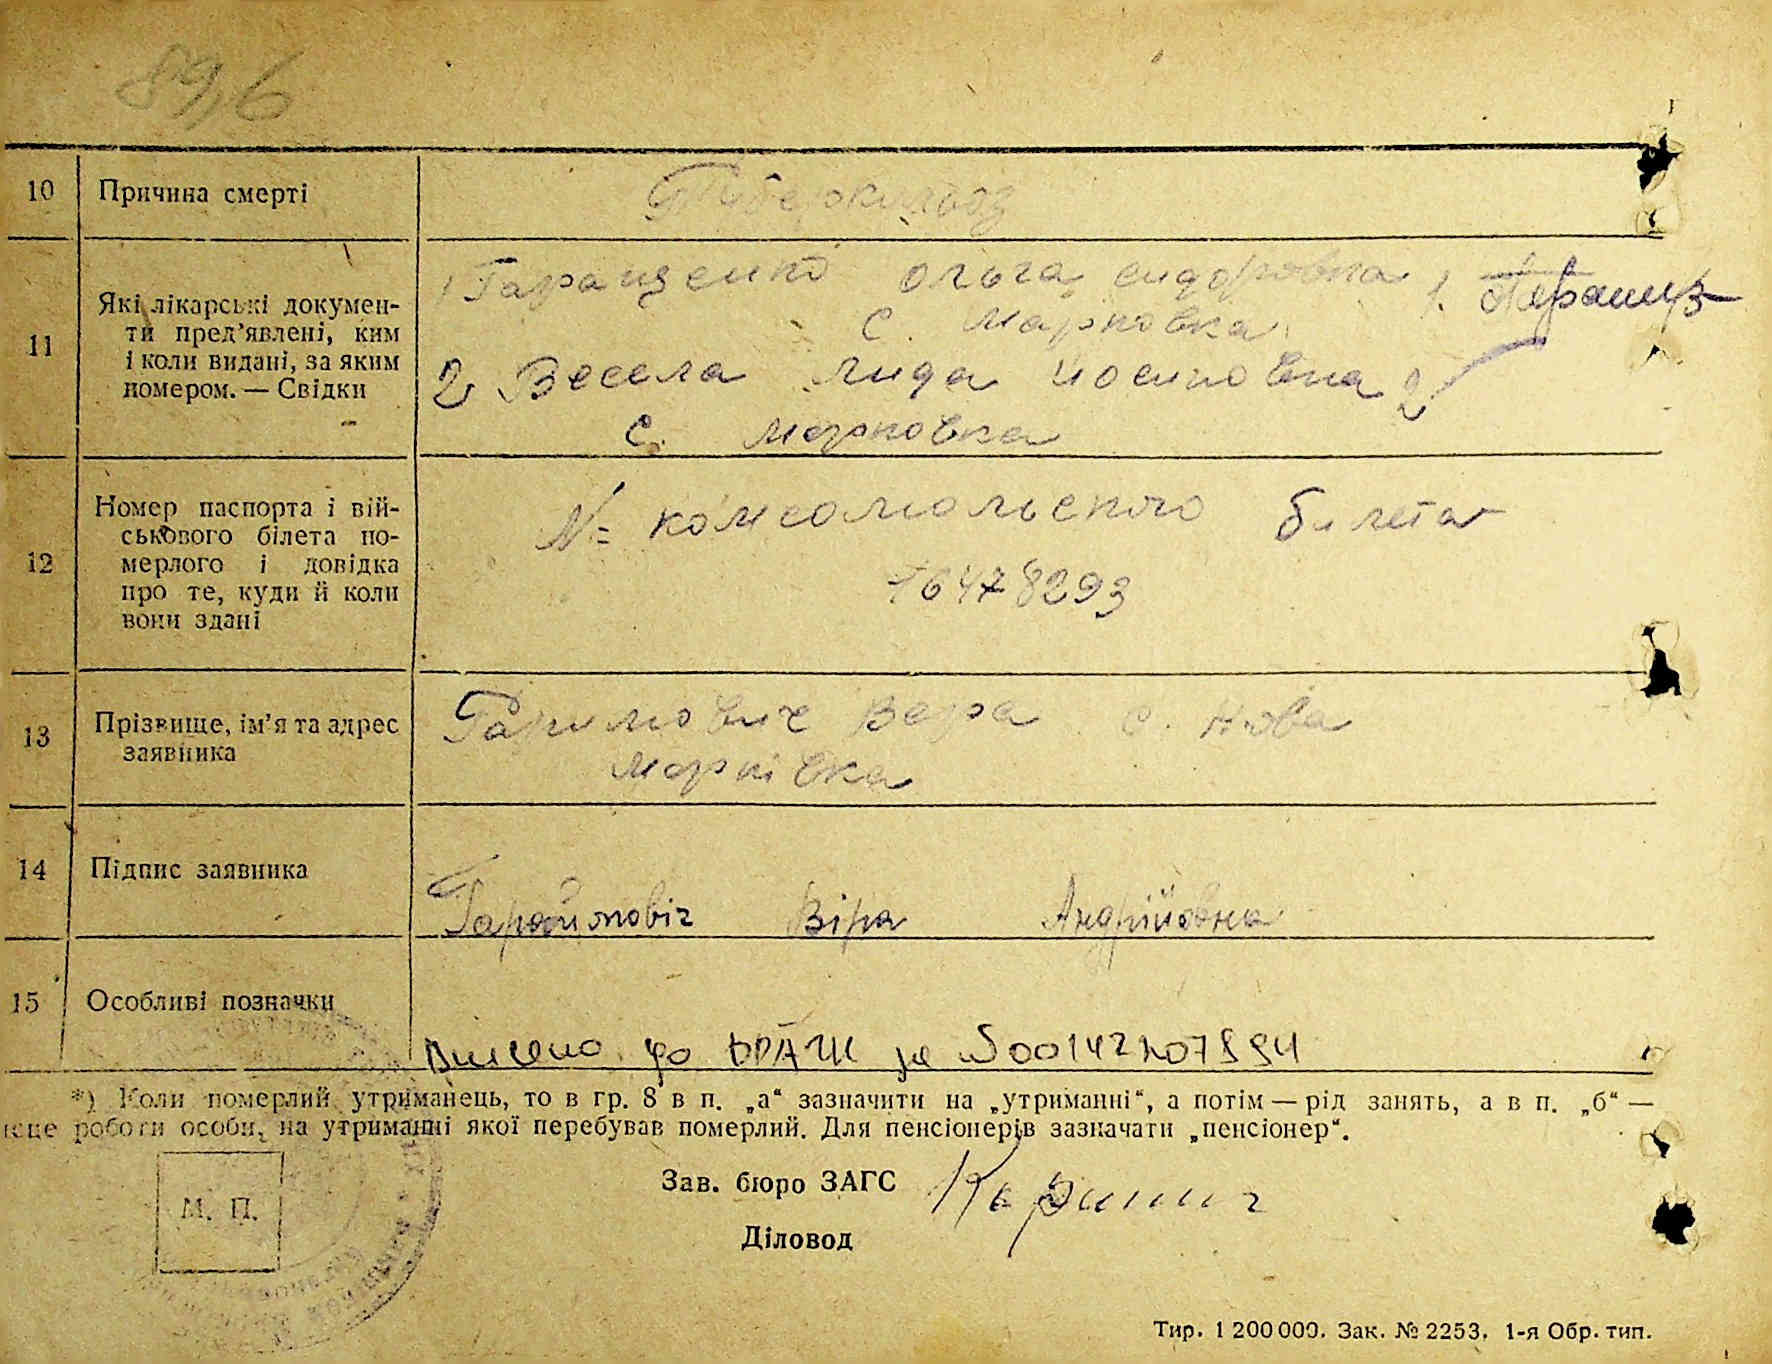 89,6
10 Причина смерті Туберкильоз
11 Які лікарські докумен-
ти пред'явлені, ким
і коли видані, за яким
номером. — Свідки
1) Гаращенко Ольга сидоровна 1.
с Марковка
2) Весела Лида Иосиповна 2
с. Марковка
12 Номер паспорта і вій-
ськового білета по-
мерлого і довідка
про те, куди й коли
вони здані
№ комсомольского билета
16478293
13 Прізвище, ім'я та адрес
заявника
Вера с. Нова
Марківка
14 Підпис заявника
Віра Андрійовна
15 Особливі позначки
Внесено до ДРАЦС за №00142107994
*) Коли померлий утриманець, то в гр. 8 в п. „а“ зазначити на „утриманні“, а потім — рід занять, а в п. „б“ —
місце роботи особи, на утриманні якої перебував померлий. Для пенсіонерів зазначати „пенсіонер“.
Зав. бюро ЗАГС
М. П.
Діловод
Тир. 1 200 000. Зак. № 2253. 1-я Обр. тип.